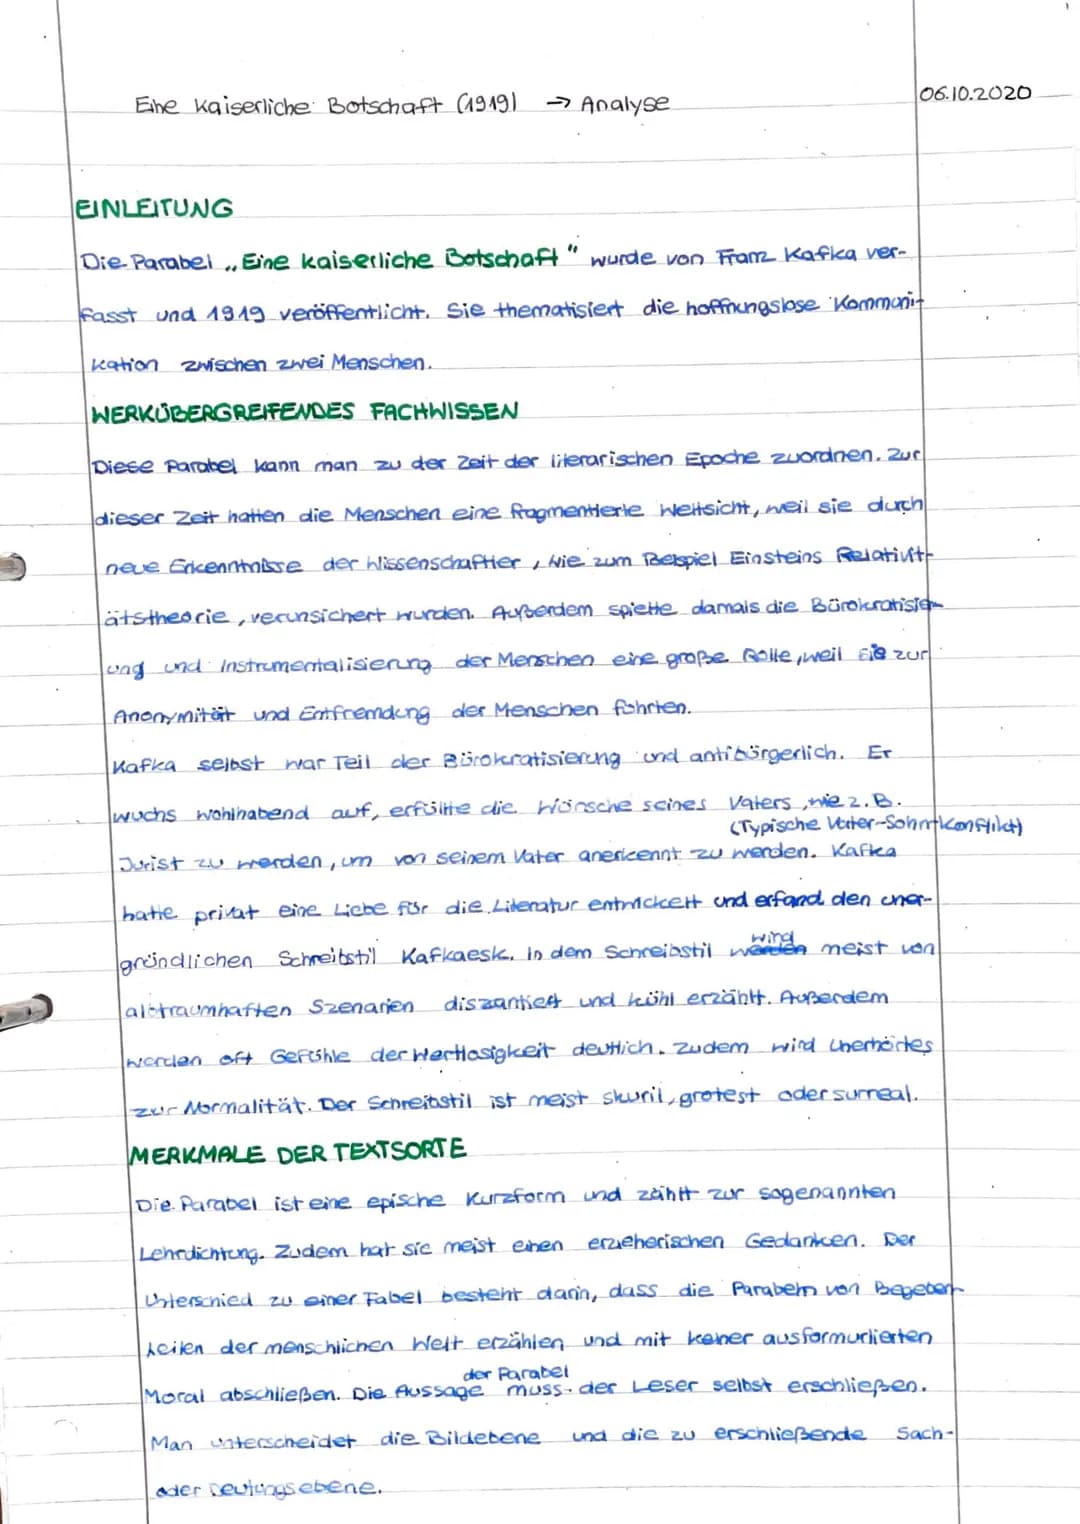 Eine Kaiserliche Botschaft (1919) → Analyse
06.10.2020
EINLEITUNG
Die Parabel „Eine kaiserliche Botschaft" wurde von Franz Kafka ver-
fasst und 1919 veröffentlicht. Sie thematisiert die hoffnungslose Kommuni-
kation zwischen zwei Menschen.
WERKÜBERGREIFENDES FACHWISSEN
Diese Parabel kann man zu der Zeit der literarischen Epoche zuordnen. Zur
dieser Zeit hatten die Menschen eine fragmentierte Weltsicht, weil sie durch
neue Erkenntnisse der Wissenschaftler, wie zum Beispiel Einsteins Relativit-
ätstheorie, verunsichert wurden. Außerdem spielte damals die Bürokratisier-
ung und Instrumentalisierung der Menschen eine große Rolle, weil sie zur
Anonymität und Entfremdung der Menschen führten.
Kafka selbst war Teil der Bürokratisierung und antibürgerlich. Er
wuchs wohlhabend auf, erfüllte die Wünsche seines Vaters, wie z.B.
(Typische Vater-Sohn-Konflikt)
Jurist zu werden, um von seinem Vater anerkennt zu werden. Kafka
hatte privat eine Liebe für die Literatur entwickelt und erfand den uner-
gründlichen Schreibstil Kafkaesk. In dem Schreibstil wird meist von
albtraumhaften Szenarien diszantiert und kühl erzählt. Außerdem
werden oft Gefühle der Wertlosigkeit deutlich. Zudem wird Unerhörtes
zur Normalität. Der Schreibstil ist meist skuril, grotest oder surreal.
MERKMALE DER TEXTSORTE
Die Parabel ist eine epische Kurzform und zählt zur sogenannten
Lehrdichtung. Zudem hat sie meist einen erzieherischen Gedanken. Der
Unterschied zu einer Fabel besteht darin, dass die Parabeln von Begeben-
heiten der menschlichen Welt erzählen und mit keiner ausformurlierten
Moral abschließen. Die Aussage der Parabel muss der Leser selbst erschließen.
Man unterscheidet die Bildebene und die zu erschließende Sach-
oder Deutungsebene.